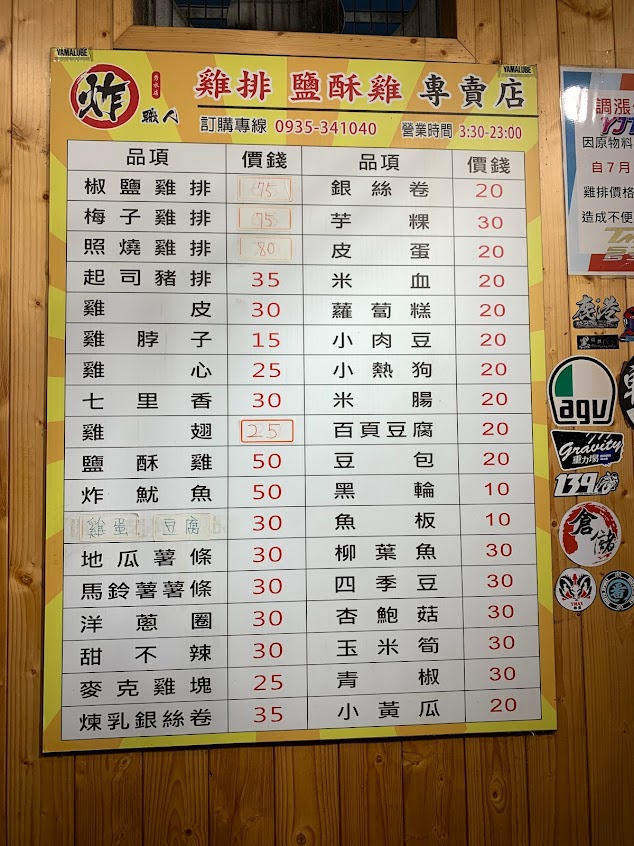 YAMALUBE
YAMALUBE
炸 職人
雞排 鹽酥雞 專賣店
訂購專線 0935-341040 營業時間 3:30-23:00
品項 價錢 品項 價錢
椒鹽雞排 75 銀絲卷 20
梅子雞排 75 芋粿 30
照燒雞排 80 皮蛋 20
起司豬排 35 米血 20
雞皮 30 蘿蔔糕 20
雞脖子 15 小肉豆 20
雞心 25 小熱狗 20
七里香 30 米腸 20
雞翅 25 百頁豆腐 20
鹽酥雞 50 豆包 20
炸魷魚 50 黑輪 10
雞蛋豆腐 30 魚板 10
地瓜薯條 30 柳葉魚 30
馬鈴薯薯條 30 四季豆 30
洋蔥圈 30 杏鮑菇 30
甜不辣 30 玉米筍 30
麥克雞塊 25 青椒 30
煉乳銀絲卷 35 小黃瓜 20
調漲
因原物料
自7月
雞排價格
造成不便
鹿港
agv
Gravity
重力場
139
倉儲